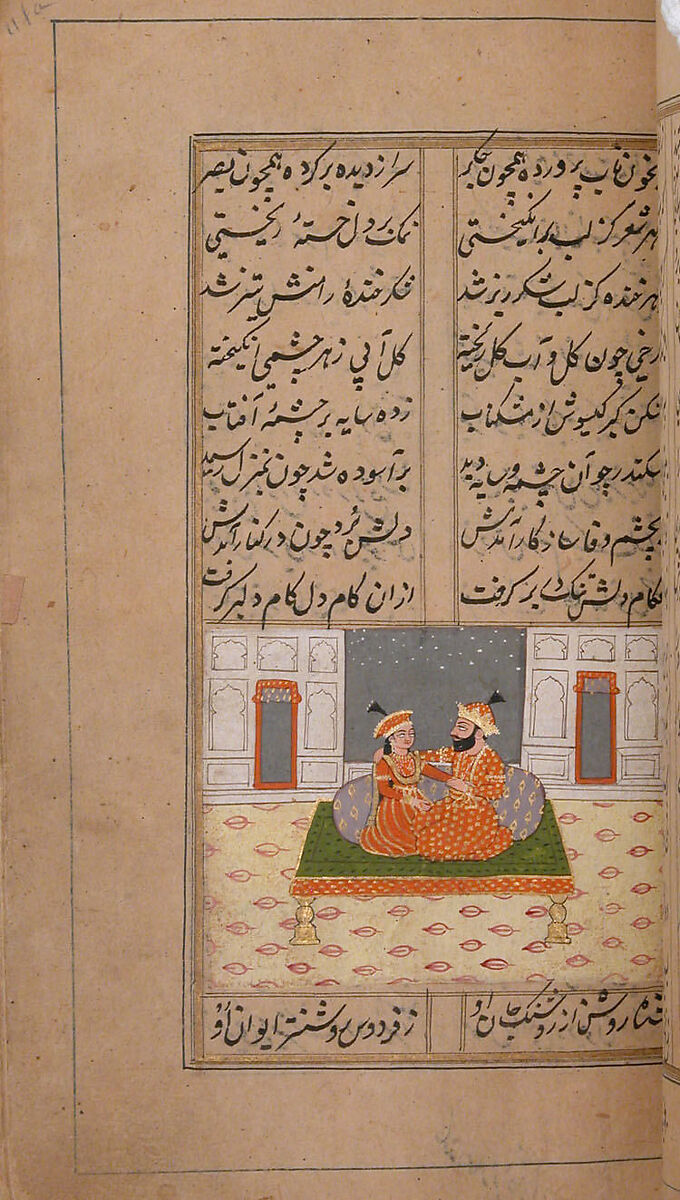 بخون ناب پرورده همچون جکر سر از دیده بر کرده همچون بصر
بهر شعر کز لب برانکیختی نمک بر دل خستهٔ ریختی
بهر خنده کز لب شکرریز شد شکر خندهٔ رامنش تیز شد
رخی چون کل و آب کل ریخته کل آبی ز هر چشمی انکیخته
شکن کیر کیسوش از مشکناب زده سایه بر چشمهٔ آفتاب
سکندر چو آن چشمه و سایه دید بر آسوده شد چون بمنزل رسید
بچشم وفا سازکار آمدش دلش برد چون در کنار آمدش
بکام دلش تنک در بر کرفت ازان کام دل کام دلبر کرفت
شده روشن از روشنک جان او ز فردوس روشنتر ایوان او